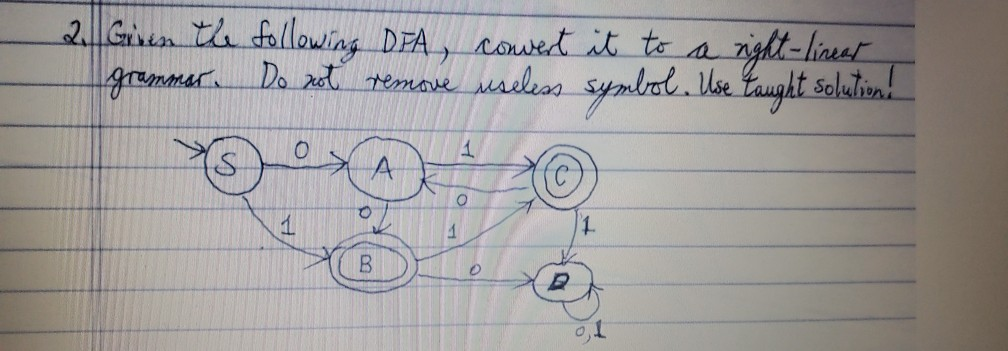 2. Given the following DFA, convert it to a right-linear
grammar. Do not remove useless symbol. Use taught solution!
S 0 A 1 C
0
0
1 1 1
B 0 D
0,1